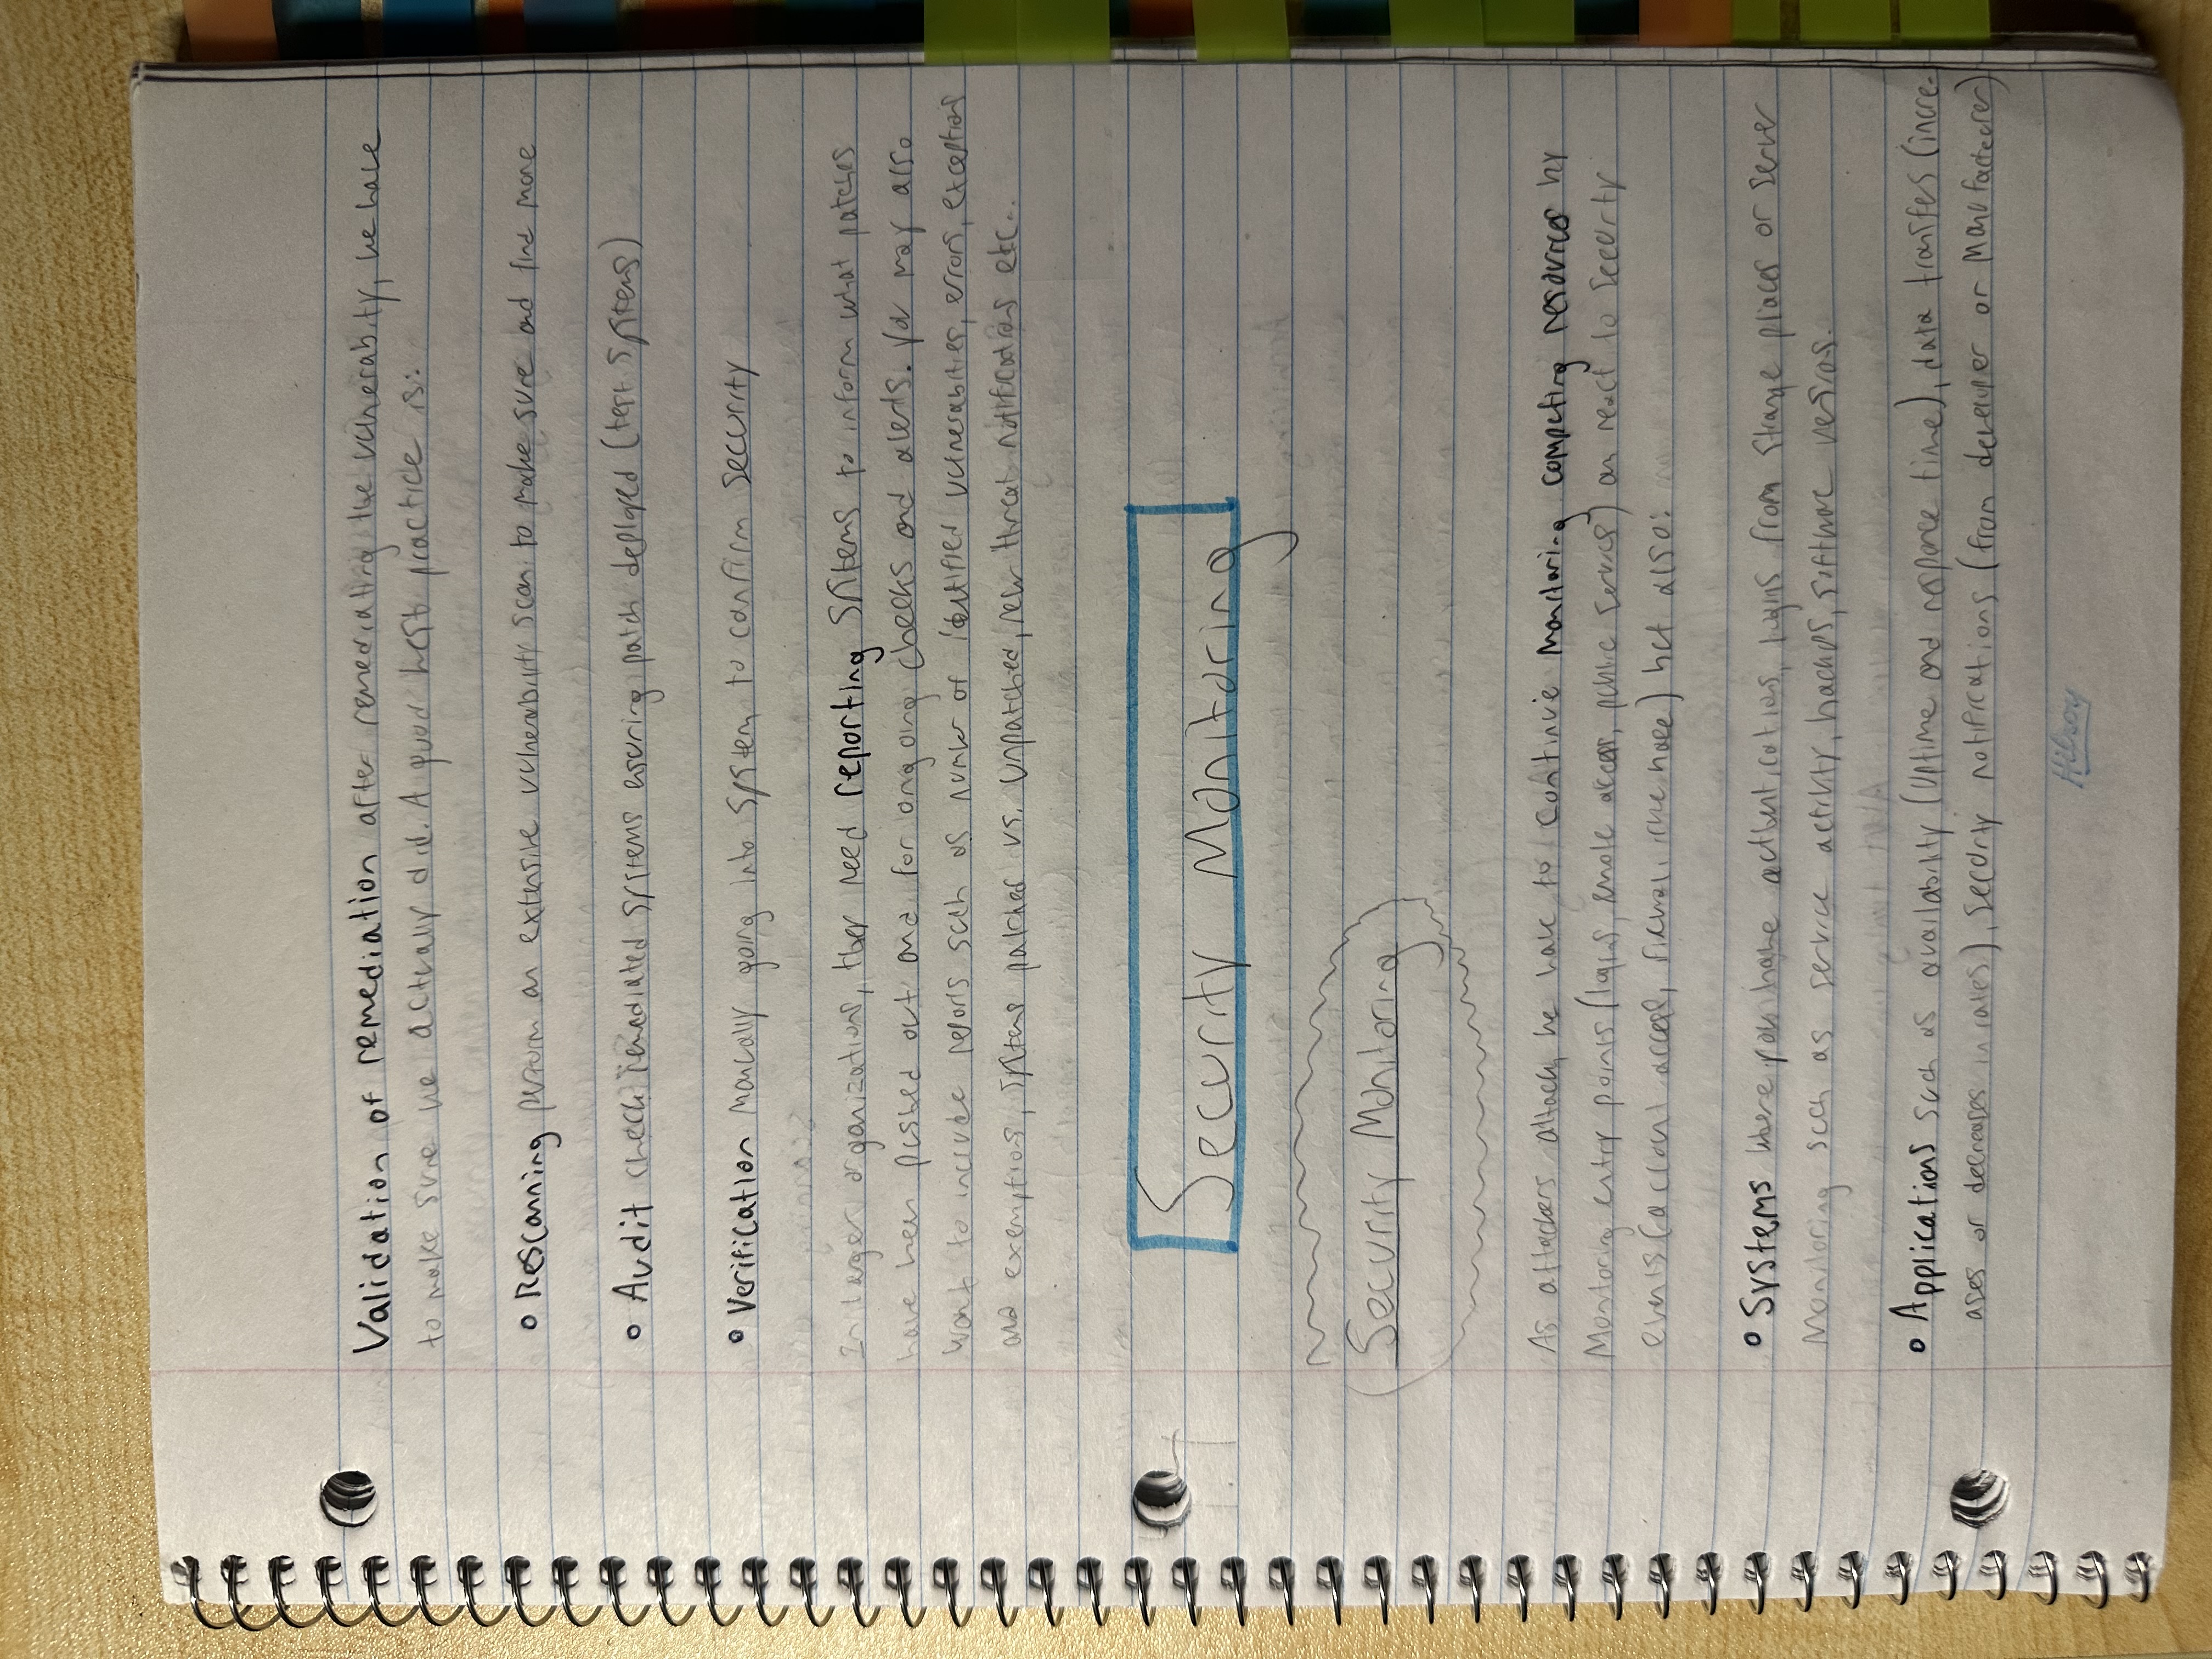 Validation of remediation after remediating the vulnerabity, we have
to make sure we actually did. A good best practice is:
Rescanning perform an extensive vulnerability scan to make sure and find more
Audit check remediated systems esuring patch deployed (test systems)
Verification manually going into system to confirm security
In larger organizations, they need reporting systems to inform what patches
have been pushed out and for ongoing checks and alerts. You may also
want to include reports such as number of identified vulnerabilities, errors, exceptions
and exemptions, systems patched vs. unpatched, new threat notifications etc..
Security Monitoring
Security Monitoring
As attackers attack, we have to continue monitoring computing resources by
Monitoring entry points (logins, remote access, public services) an react to security
events (account access, firewall, ) but also:
Systems where you have authentications, logins from strange places or server
Monitoring such as service activity, backups, software versions.
Applications such as availability (uptime and response time), data transfers (incre-
ases or decreases in rates), security notifications (from developer or manufacturer)
Hilroy